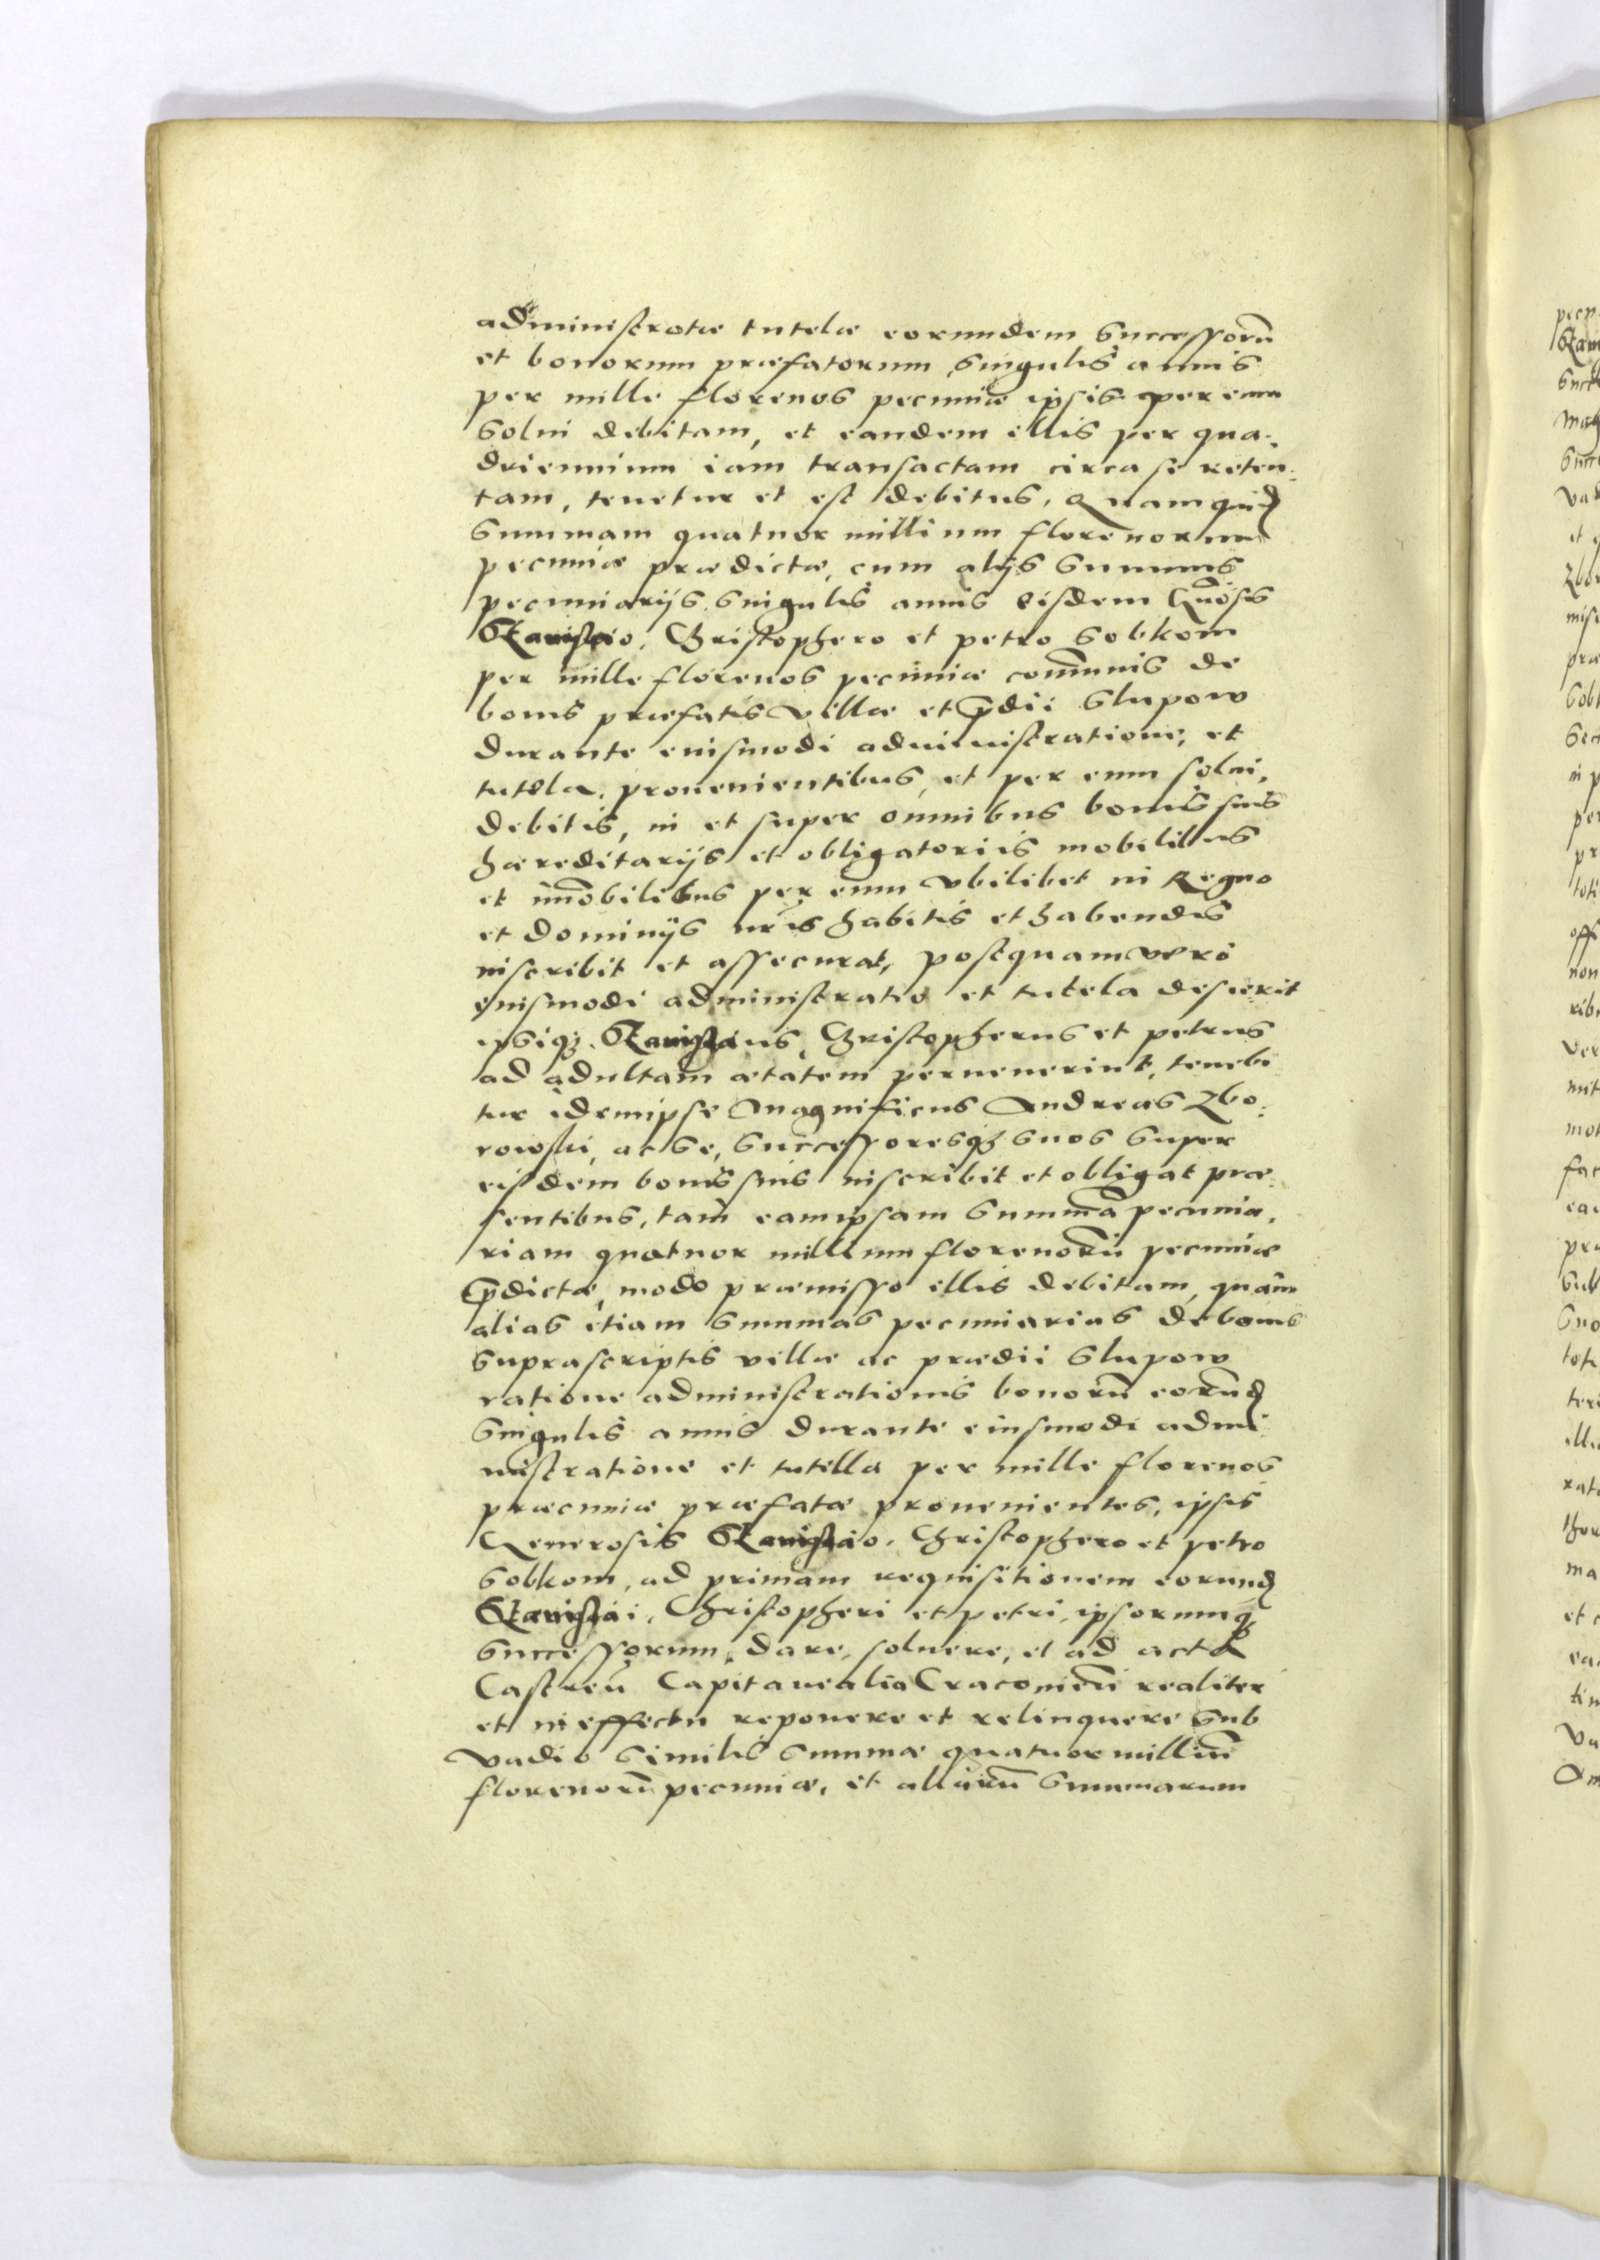 administrotæ tutelæ eorumdem successorũ
et bonorum præfatorum, singulis annis
per mille florenos pecuniæ ipsis per eum
solui debitam, et eandem illis per qua-
driennium iam transactam circa se reten-
tam, tenetur et est debitus. Quamquid
summam quatuor millium florenorum
pecuniæ prædictæ, cum alijs summis
pecuniarijs singulis annis eisdem Gñosis
Stanislao, Christophero et petro Sobkom
per mille florenos pecuniæ com̃unis de
bonis præfatis villæ et p̃dii Slupow
durante eiusmodi administratione, et
tutela, prouenientibus, et per eum solui,
debitis, in et super omnibus bonis suis
hæreditarijs et obligatoriis mobilibus
et im̃obilibus per eum vbilibet in Regno
et dominijs nr̃is habitis et habendis
inscribit et assecurat, postquam vero
eiusmodi administratio et tutela desierit
ipsiq₃ Stanislaus, Christopherus et petrus
ad adultam ætatem peruenerint, tenebi
tur idemipse Magnificus Andreas Zbo-
rowski, ac se, successoresq₃ suos super
eisdem bonis suis inscribit et obligat præ
sentibus, tam eamipsam summã pecunia-
riam quatuor millium florenorũ pecuniæ
p̃dictæ, modo præmisso illis debitam, quam
alias etiam summas pecuniarias de bonis
suprascriptis villæ ac prædii Slupow
ratione administrationis bonorũ eorund
singulis annis durante eiusmodi admi
nistratione et tutella per mille florenos
præcuniæ præfatæ prouenientes, ipsis
Generosis Stanislao, Christophero et petro
Sobkom, ad primam requisitionem eorund
Stanislai, Christopheri et petri, ipsorumq₃
successorum, dare, soluere, et ad acta
Castreñ Capitanealia Cracouieñ realiter
et in effectu reponere et relinquere sub
vadio similis summæ quatuor milliũ
florenorũ pecuniæ, et aliarũ summarum